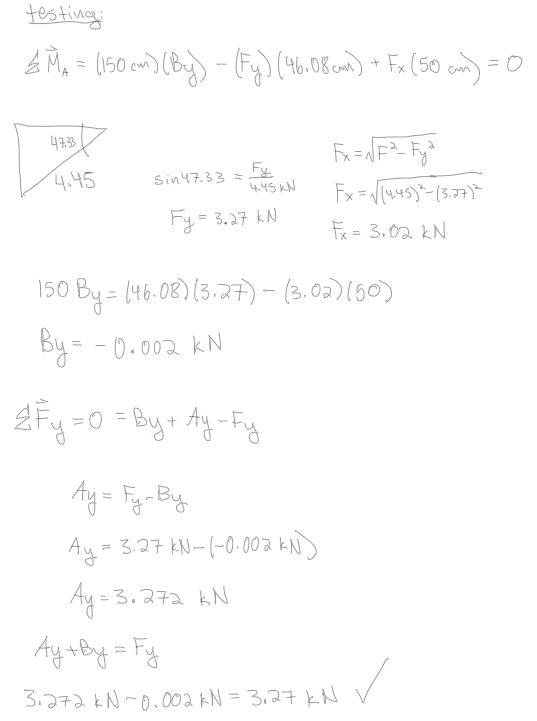 testing:
Σ M⃗_A = (150 cm)(By) - (Fy)(46.08 cm) + Fx(50 cm) = 0
47.33
4.45
sin47.33 = Fy/4.45 kN
Fy = 3.27 kN
Fx = √F² - Fy²
Fx = √(4.45)² - (3.27)²
Fx = 3.02 kN
150 By = (46.08)(3.27) - (3.02)(50)
By = - 0.002 kN
Σ F⃗y = 0 = By + Ay - Fy
Ay = Fy - By
Ay = 3.27 kN - (-0.002 kN)
Ay = 3.272 kN
Ay + By = Fy
3.272 kN - 0.002 kN = 3.27 kN ✓